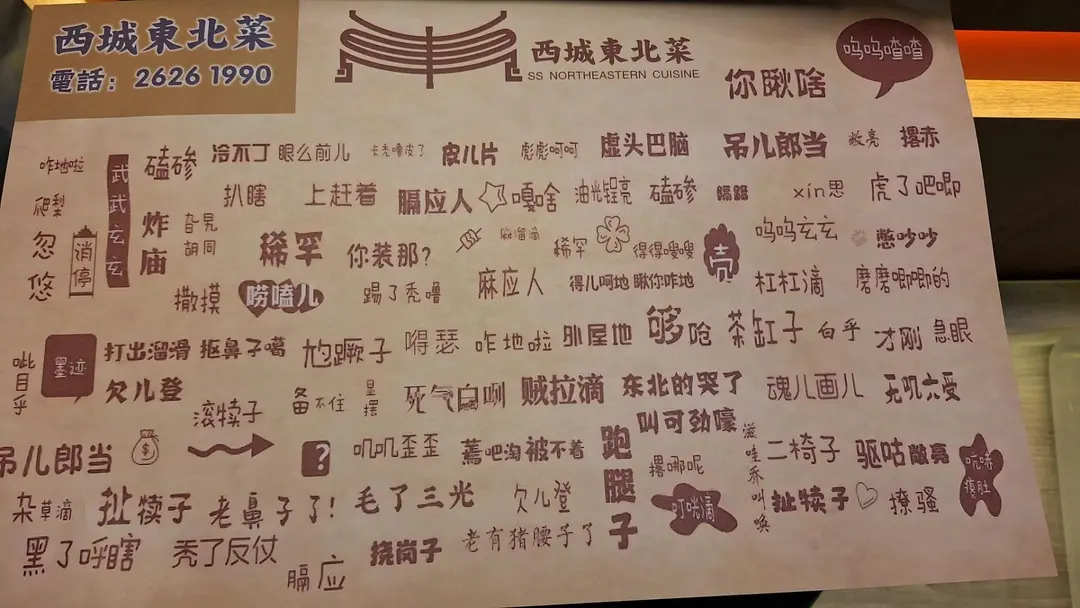 西城東北菜
電話：2626 1990
西城東北菜
SS NORTHEASTERN CUISINE
你瞅啥
呜呜喳喳
咋地啦
武武玄玄
磕碜
冷不丁
眼么前儿
卡秃噜皮了
皮儿片
彪彪呵呵
虚头巴脑
吊儿郎当
敞亮
撂赤
爬犁
扒瞎
上赶着
膈应人
嘎啥
油光锃亮
磕碜
xín思
虎了吧唧
忽悠
消停
炸庙
旮旯
胡同
稀罕
你装那？
麻溜滴
稀罕
得得嗖嗖
壳
呜呜玄玄
憋吵吵
撒摸
唠嗑儿
踢了秃噜
麻应人
得儿呵地
瞅你咋地
杠杠滴
磨磨唧唧的
呲目乎
墨迹
打出溜滑
抠鼻子噶
尥蹶子
嘚瑟
咋地啦
外屋地
够呛
茶缸子
白乎
才刚
急眼
欠儿登
滚犊子
备不住
显摆
死气白咧
贼拉滴
东北的哭了
魂儿画儿
无咒六受
吊儿郎当
?
叽叽歪歪
蔫吧淘
被不着
跑腿子
叫可劲嚎
撂哪呢
滋哇乔叫唤
二椅子
驱咕
敞亮
吭哧瘪肚
杂草滴
扯犊子
老鼻子了！
毛了三光
欠儿登
叮咣滴
扯犊子
撩骚
黑了呼瞎
秃了反仗
膈应
挠岗子
老有猪腰子了